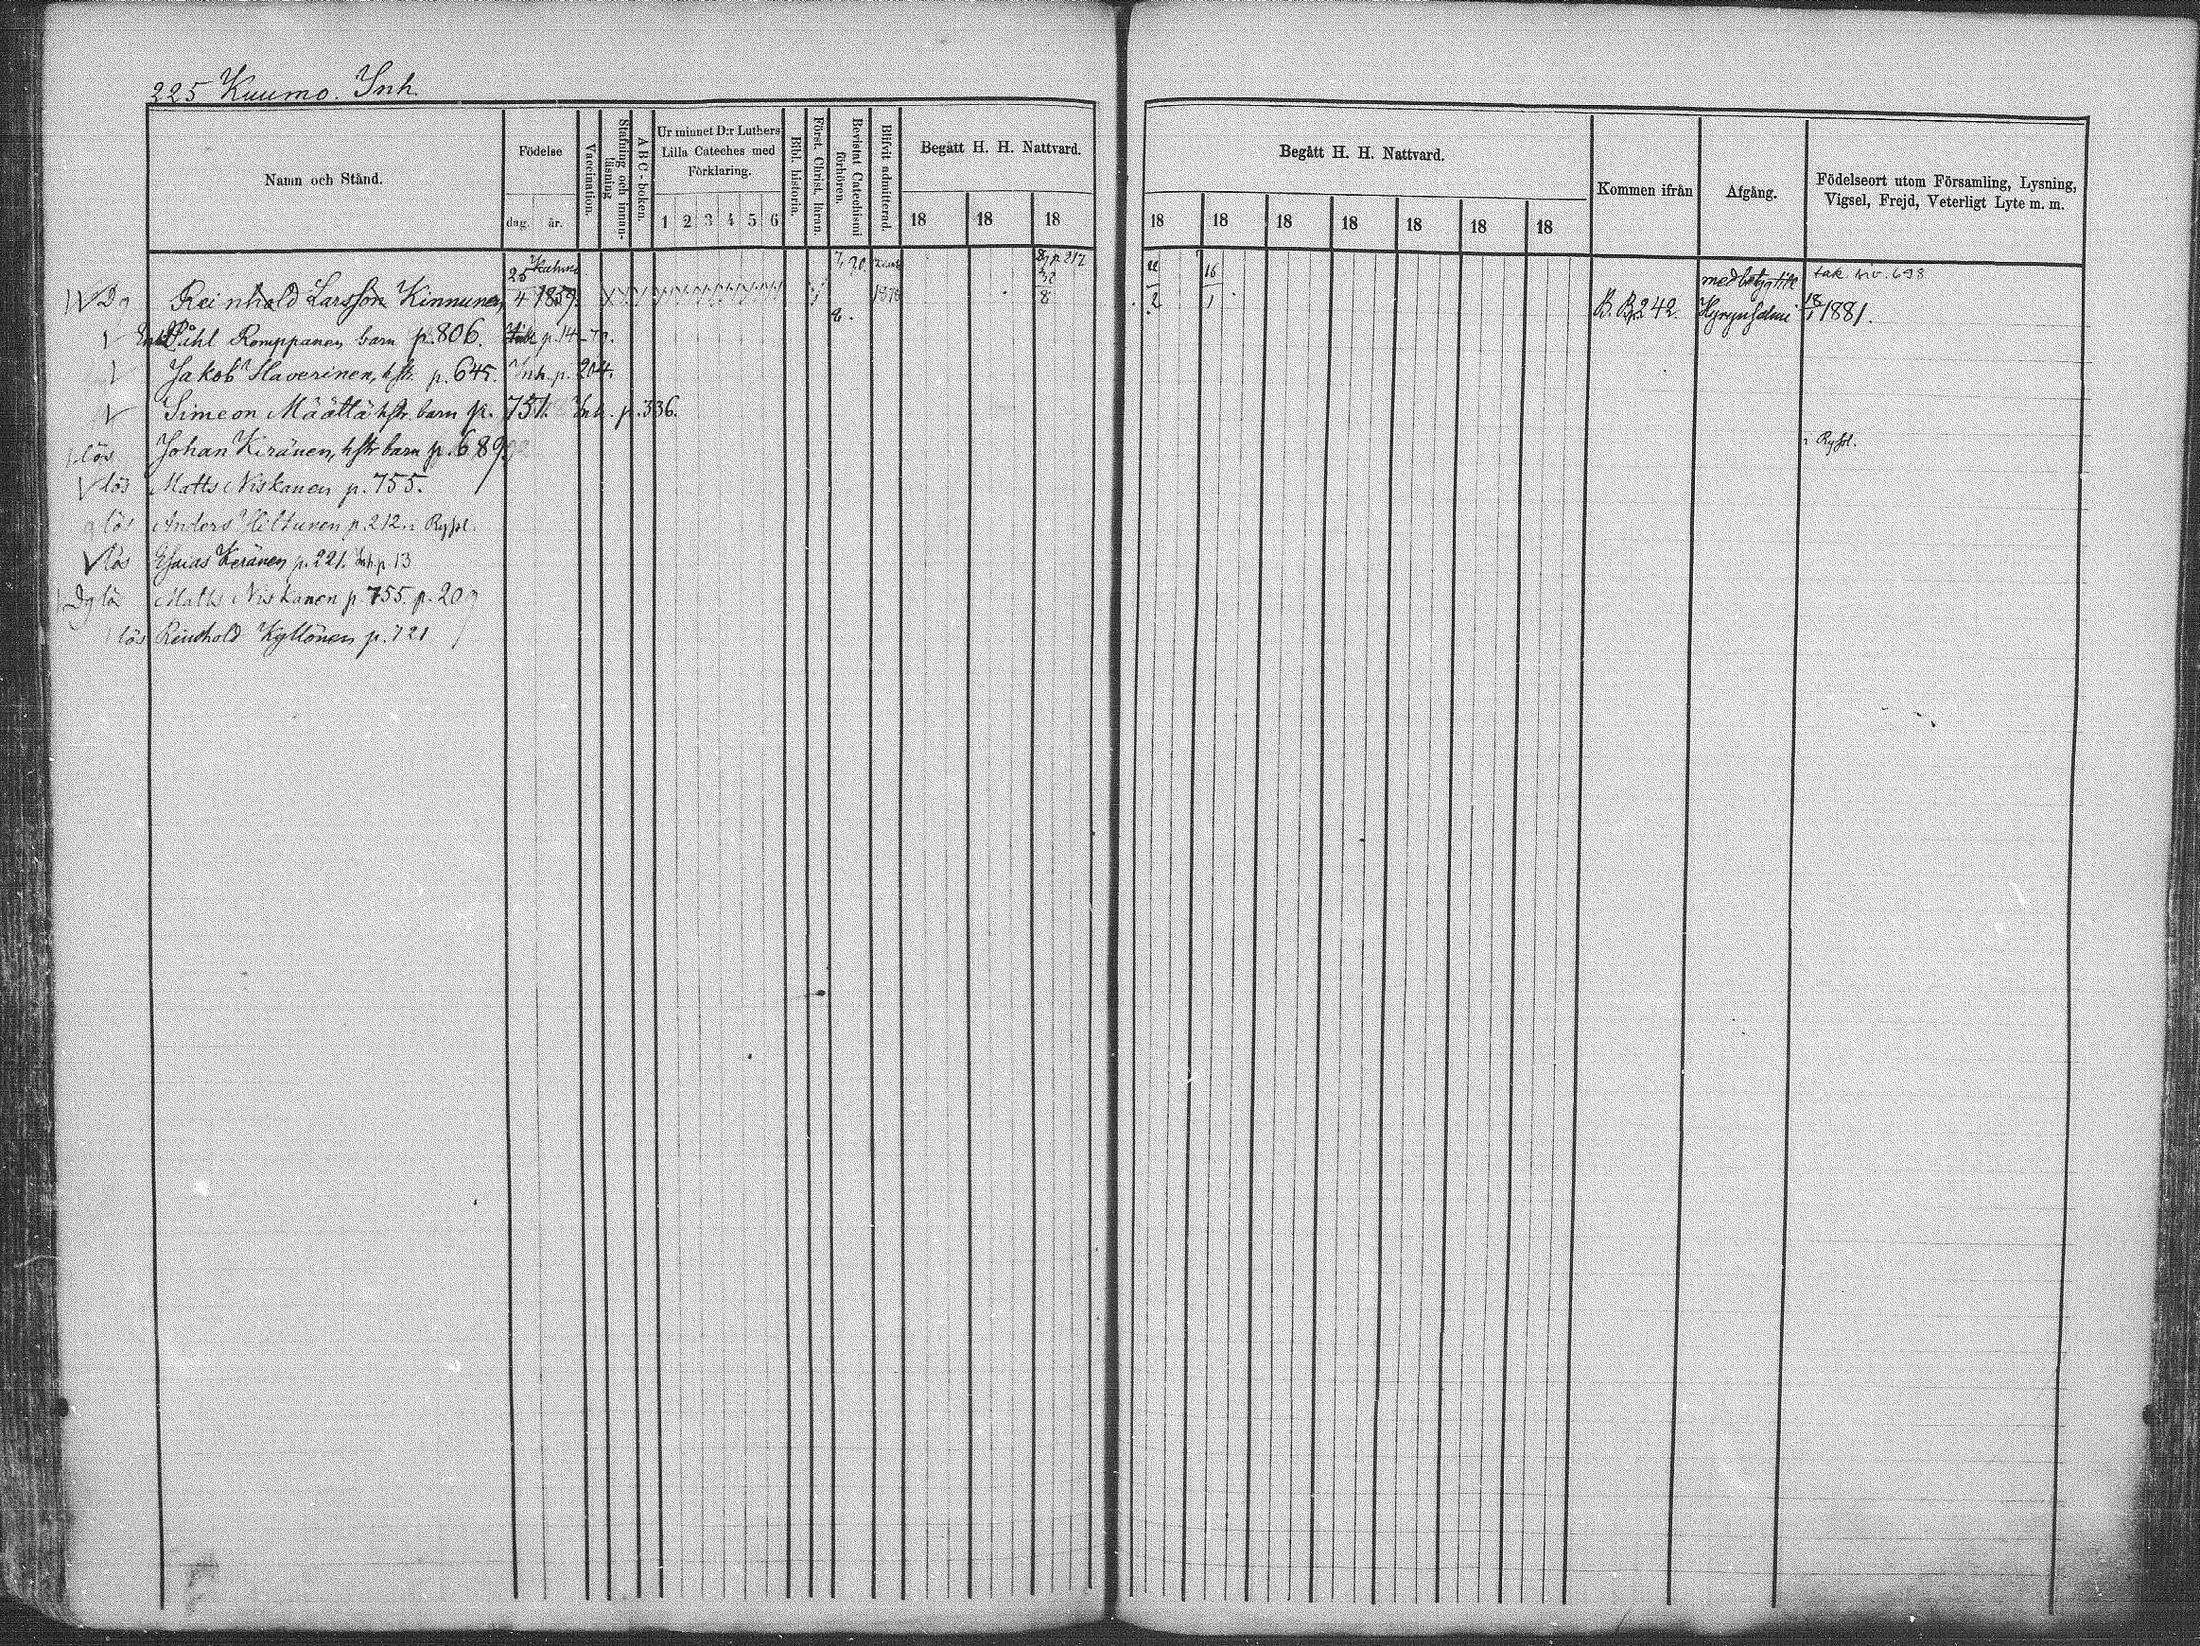 225 Kuumo. Inh.
Namn och Stånd.
Födelse
dag. år.
Vaccination.
Stafning och innanläsning
ABC-boken.
Ur minnet D:r Luthers
Lilla Cateches med
Förklaring.
1 2 3 4 5 6
Bibl. historia.
Först. Christ. läran.
Bevistat Catechismi förhören.
Blifvit admitterad.
Begått H. H. Nattvard.
18 18 18
Begått H. H. Nattvard.
18 18 18 18 18 18 18
Kommen ifrån
Afgång.
Födelseort utom Församling, Lysning,
Vigsel, Frejd, Veterligt Lyte m. m.
Dg Reinhold Larsson Kinnunen 25/4 1859. 1876 p. 217 2/8 2 16/1 B. B. 242. med betyg till Hyrynsalmi 18/1 1881.
698
Påhl Romppanen barn p. 806. p. 14
Jakob Haverinen, hstr. p. 645. Inh. p. 204.
Simeon Määttä hstr barn p. 751. Inh. p. 336.
lös Johan Keränen, hstr barn p. 689
Rysl.
lös Matts Niskanen p. 755.
lös Anders Hiltunen p. 212. Rysl.
lös Esaias Keränen p. 221. Inh. p. 13
Dg lös Matts Niskanen p. 755. p. 209
lös Reinhold Kyllönen p. 721